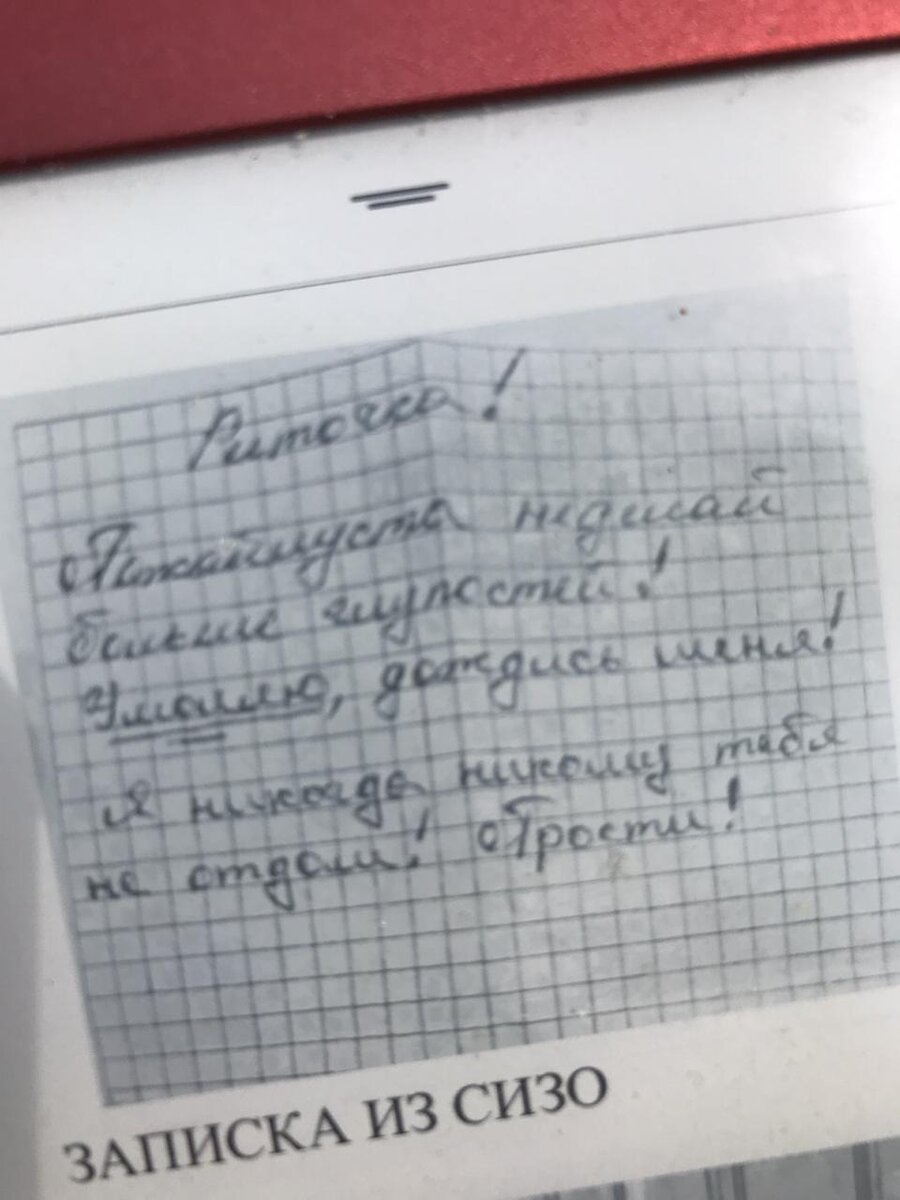 Риточка!
Пожайлуста не делай
больше глупостей!
Умоляю, дождись меня!
Я никогда никому тебя
не отдам! Прости!
ЗАПИСКА ИЗ СИЗО